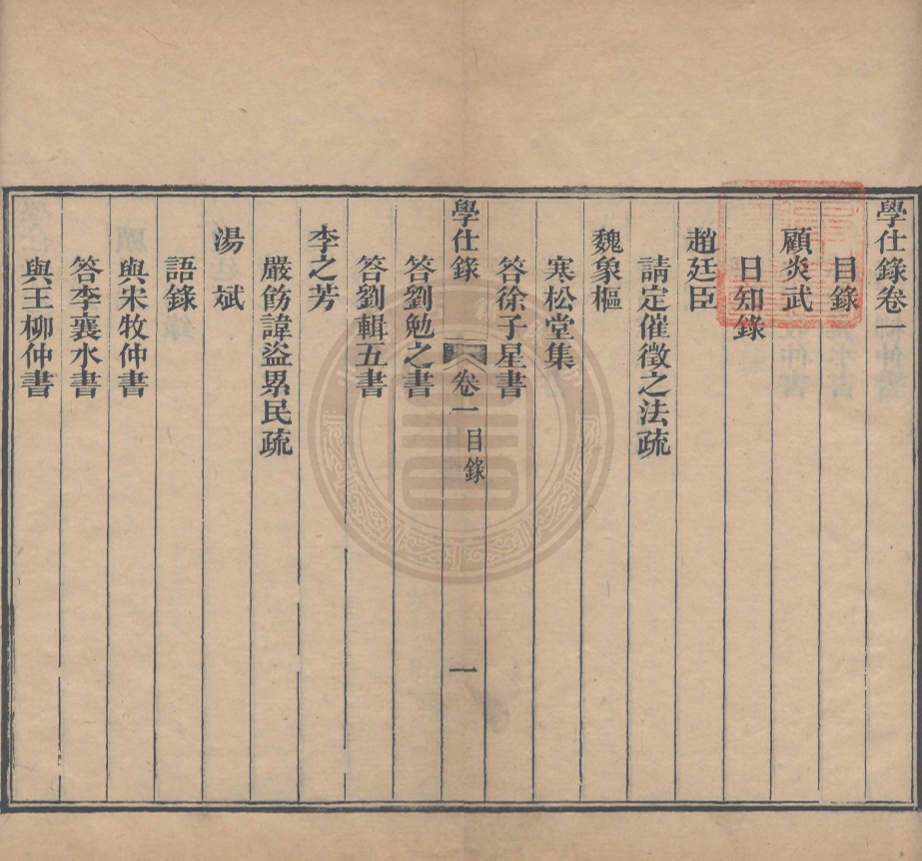 學仕錄卷一
目錄
顧炎武
日知錄
趙廷臣
請定催徵之法疏
魏象樞
寒松堂集
答徐子星書
學仕錄 卷一 目錄 一
答劉勉之書
答劉輯五書
李之芳
嚴飭諱盜累民疏
湯斌
語錄
與朱牧仲書
答李襄水書
與王柳仲書